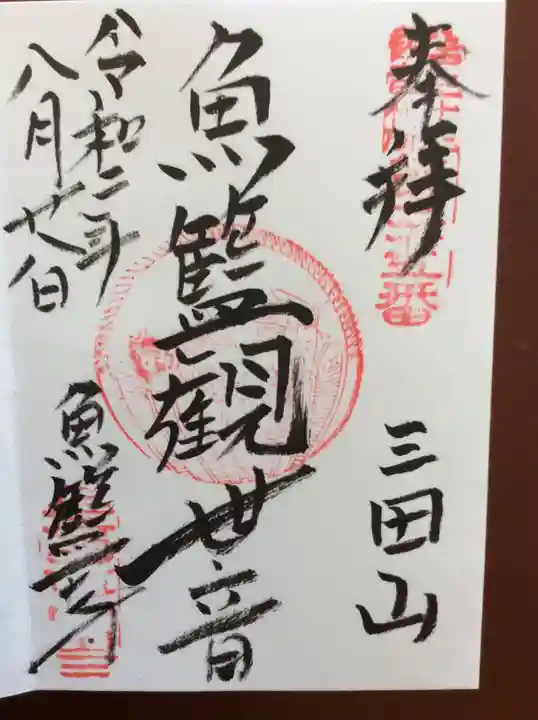 奉拝
三田山
魚籃観世音
令和二年
八月廿八日
魚籃寺